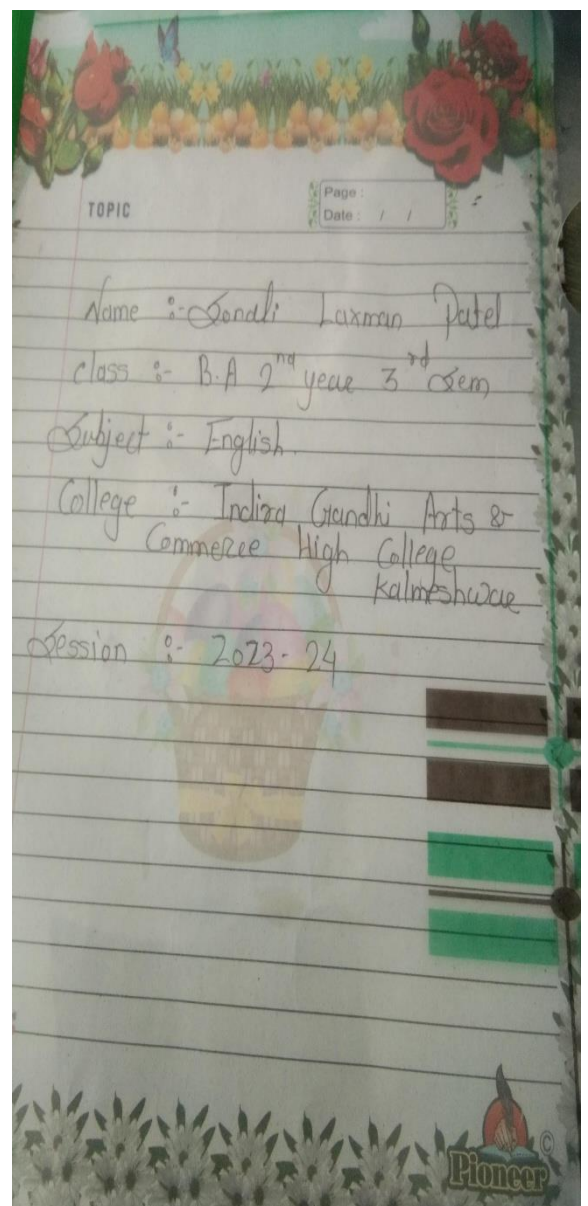 TOPIC
Page :
Date : / /
Name :- Sonali Laxman Patel
class :- B.A 2nd year 3rd Sem
Subject :- English.
College :- Indira Gandhi Arts &
Commerce High College
Kalmeshwar
Session :- 2023-24
Pioneer
©